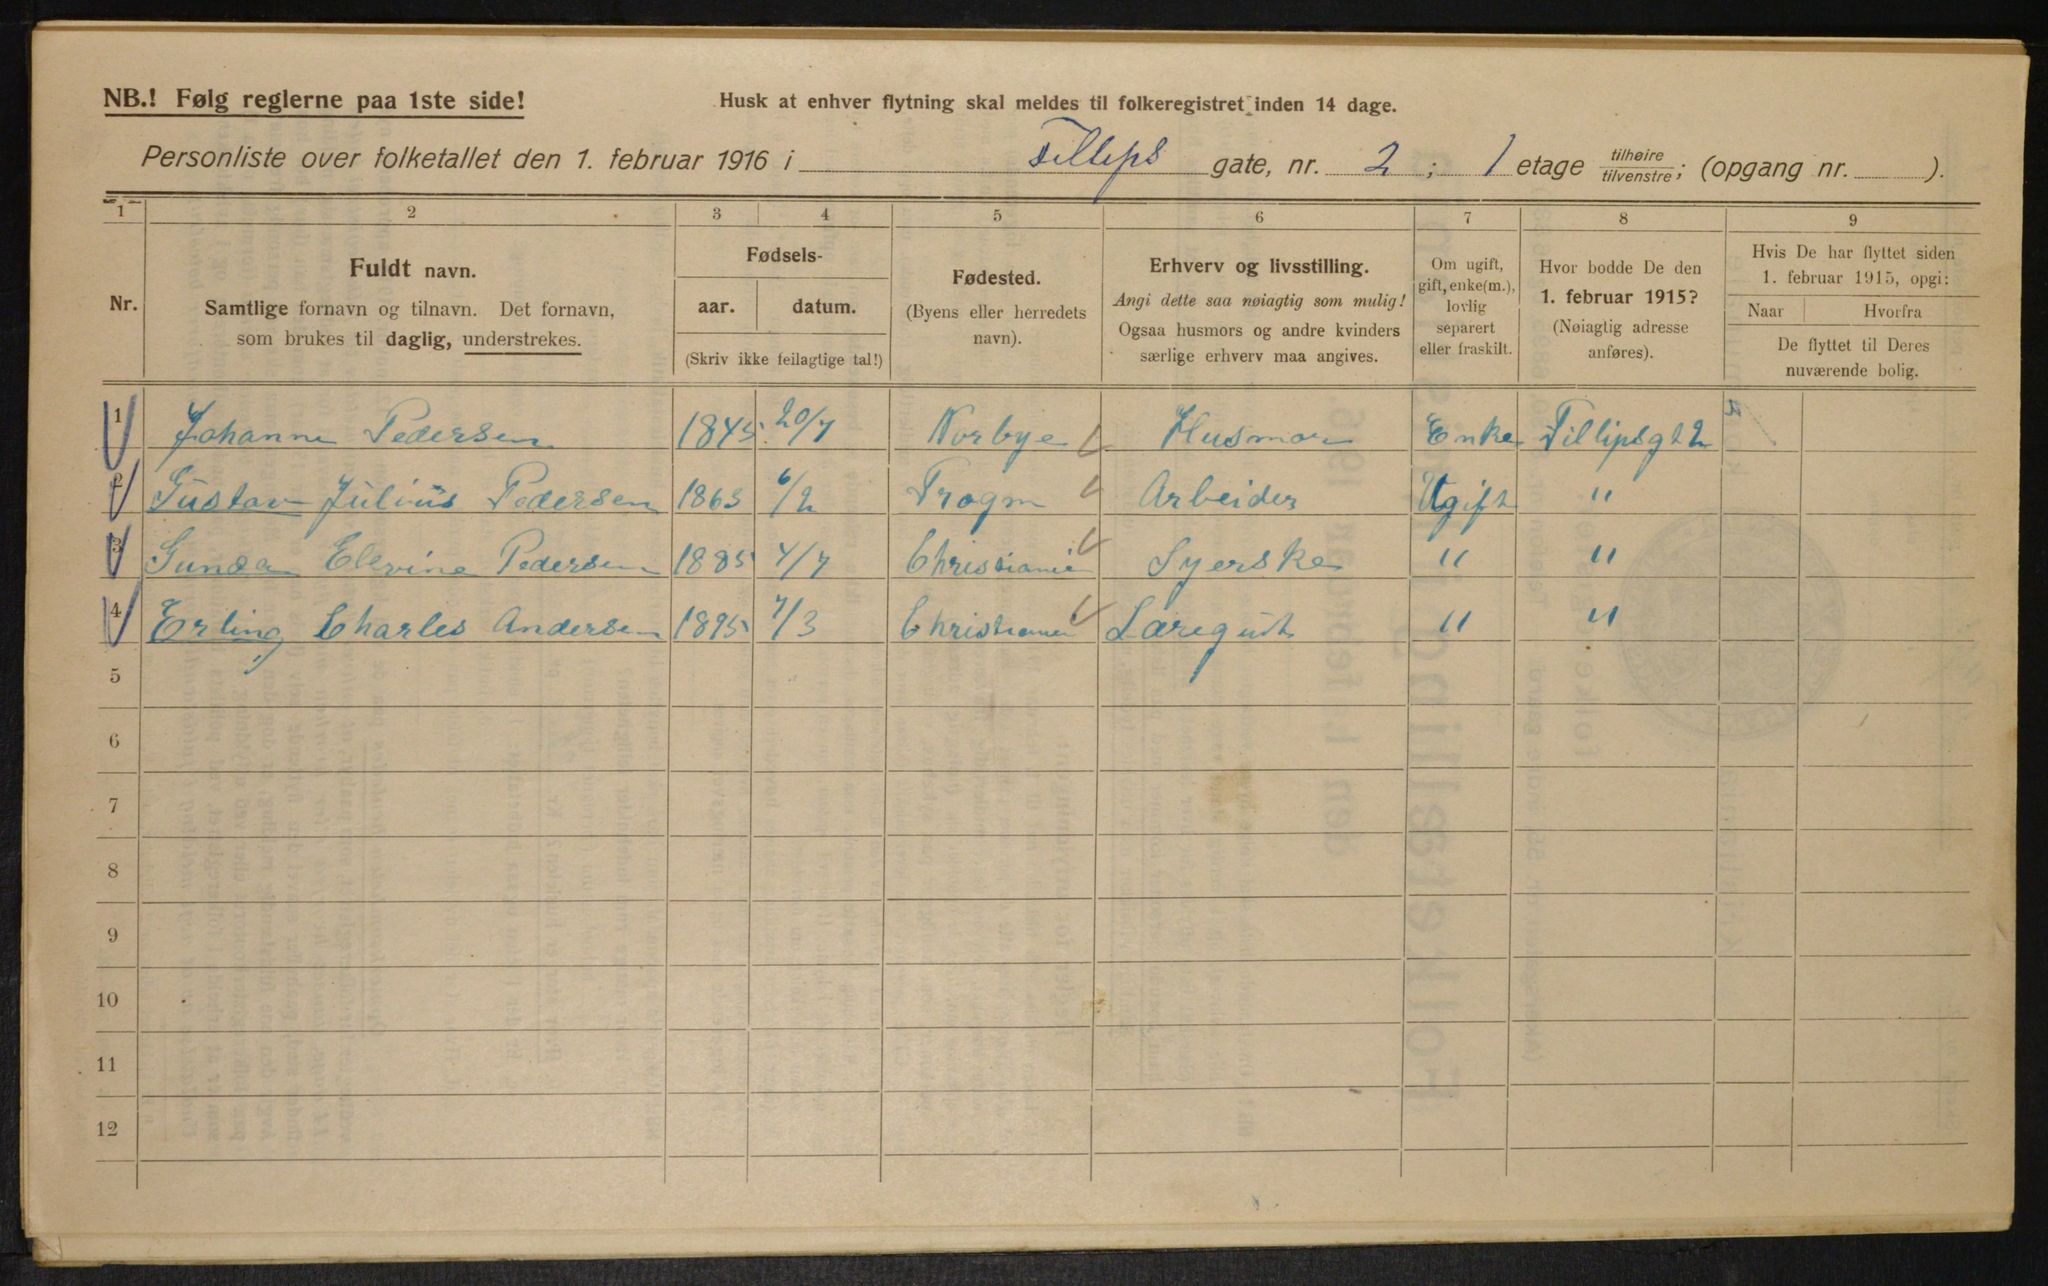 NB.! Følg reglerne paa 1ste side!
Husk at enhver flytning skal meldes til folkeregistret inden 14 dage.
Personliste over folketallet den 1. februar 1916 i Fillips gate, nr. 2; 1 etage tilhøire/tilvenstre; (opgang nr. ).
1 2 3 4 5 6 7 8 9
Nr.
Fuldt navn.
Samtlige fornavn og tilnavn. Det fornavn,
som brukes til daglig, understrekes.
Fødsels-
aar. datum.
(Skriv ikke feilagtige tal!)
Fødested.
(Byens eller herredets
navn).
Erhverv og livsstilling.
Angi dette saa nøiagtig som mulig!
Ogsaa husmors og andre kvinders
særlige erhverv maa angives.
Om ugift,
gift, enke(m.),
lovlig
separert
eller fraskilt.
Hvor bodde De den
1. februar 1915?
(Nøiagtig adresse
anføres).
Hvis De har flyttet siden
1. februar 1915, opgi:
Naar Hvorfra
De flyttet til Deres
nuværende bolig.
1 Johanne Pedersen 1845 20/7 Norbye Husmor Enke Fillipsgt 2
2 Gustav Julius Pedersen 1863 6/2 Trogm Arbeider Ugift "
3 Gunda Elevine Pedersen 1885 4/7 Christiania Syerske " "
4 Erling Charles Andersen 1895 7/3 Christiania Læregut " "
5
6
7
8
9
10
11
12